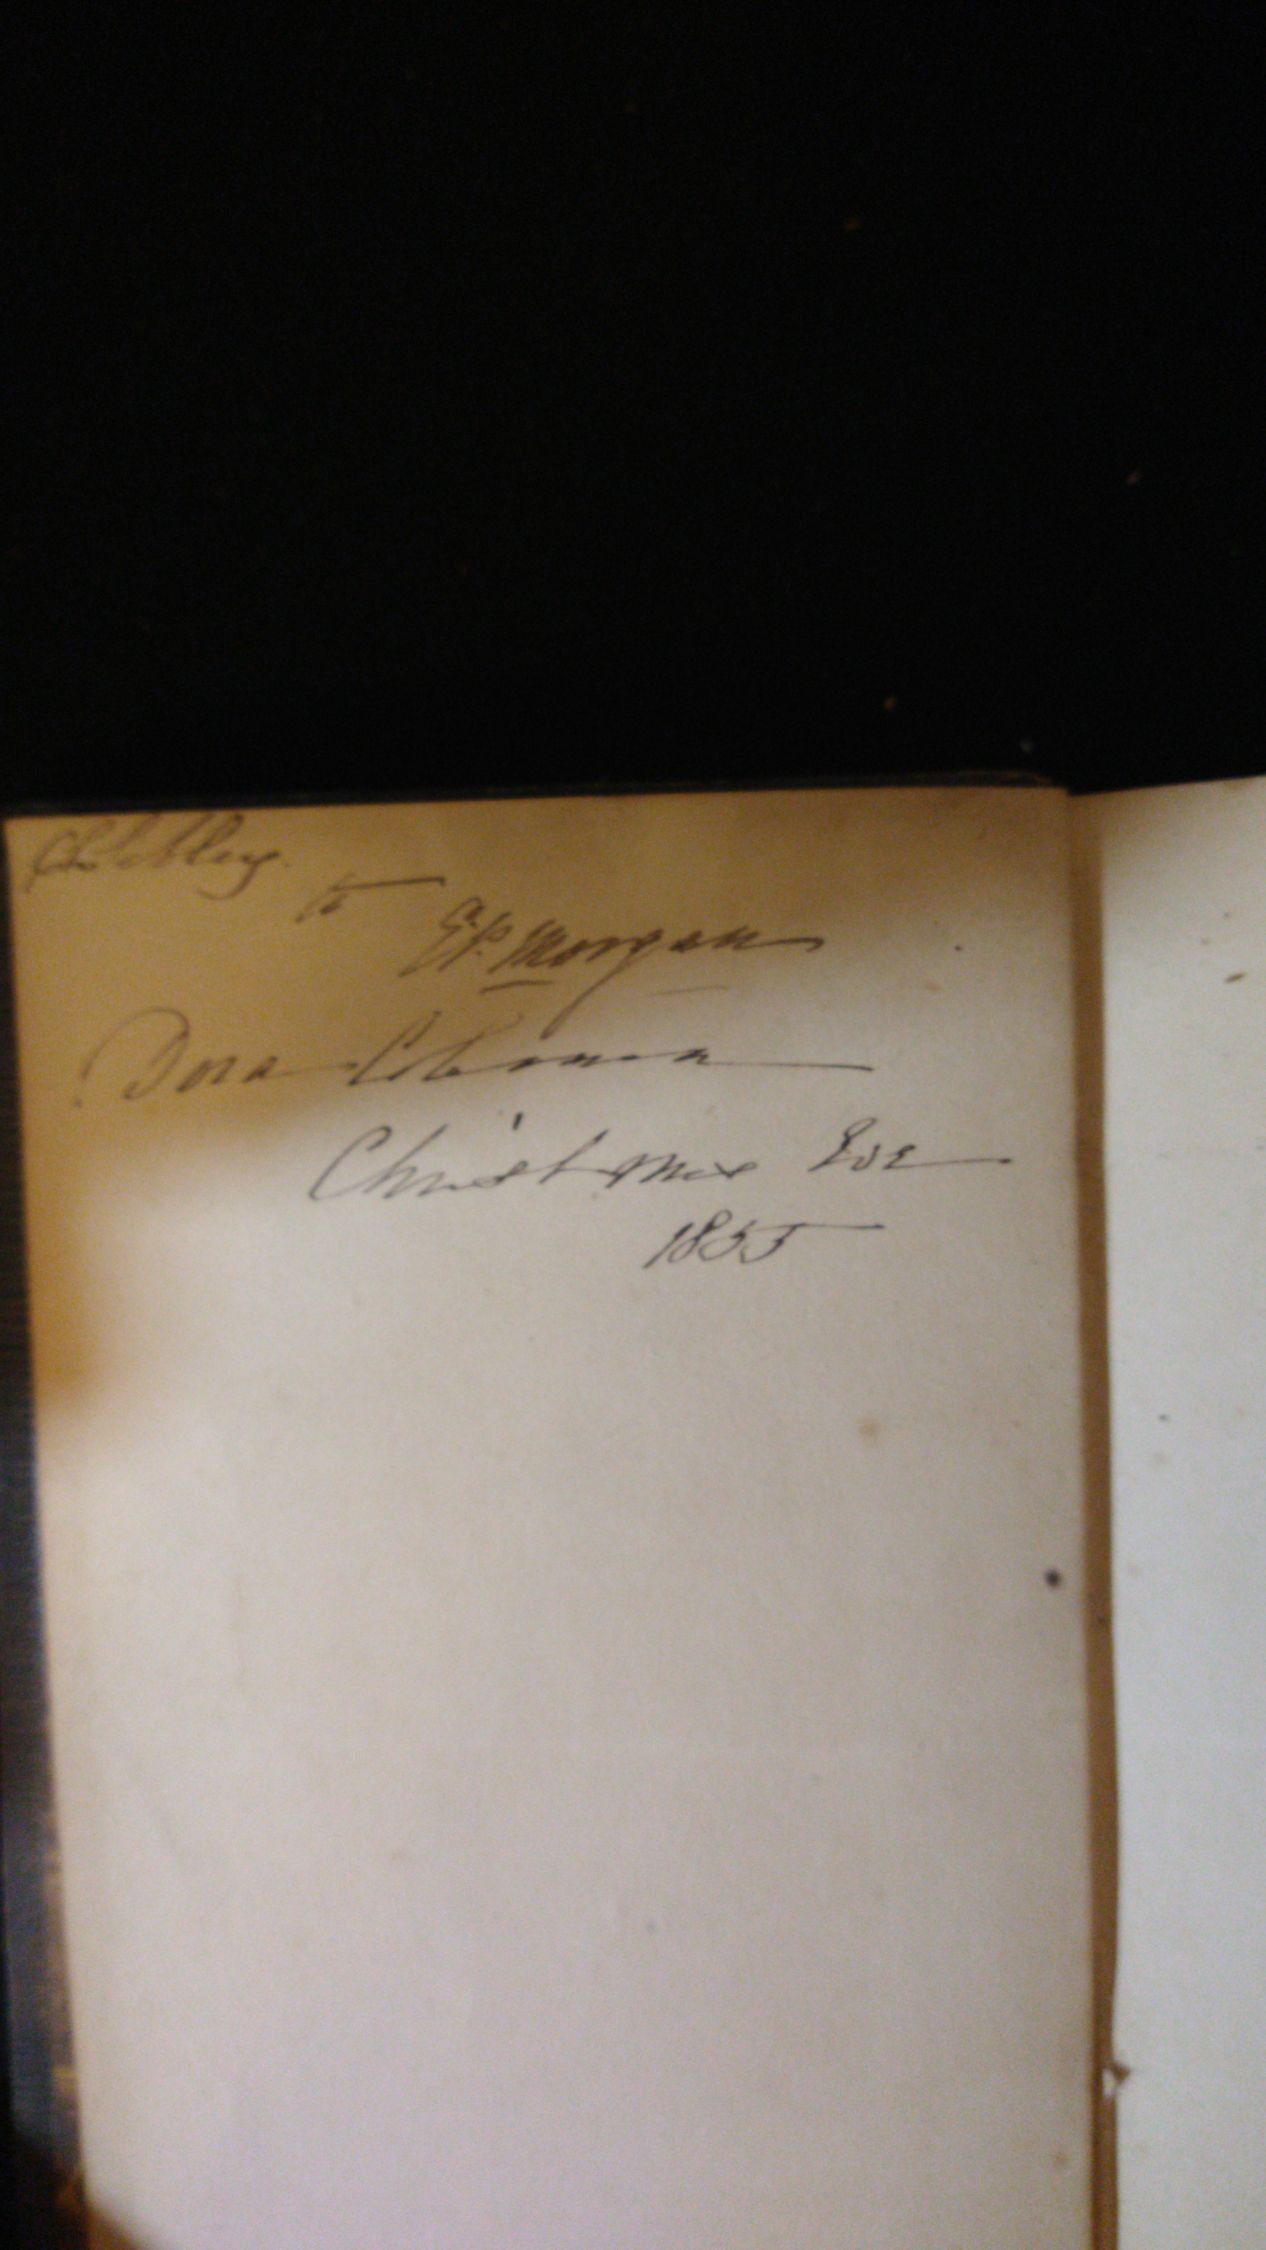 to
E. P. Morgan
Dora
Christmas Eve
1855